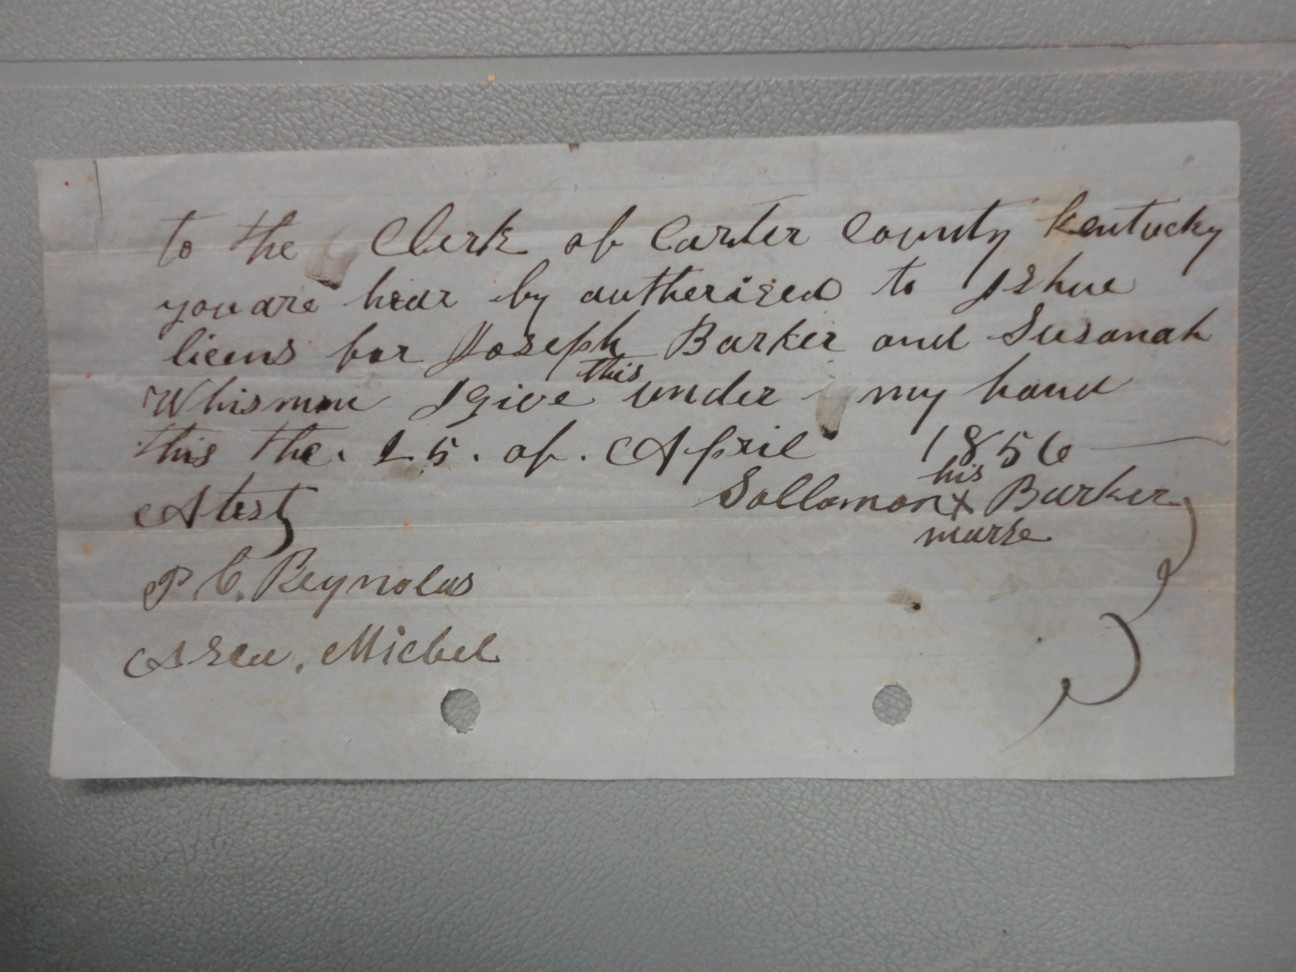 to the Clerk of Carter County Kentucky
you are hear by autherised to Ishue
licens for Joseph Barker and Susanah
Whisman I give this under my hand
this the. 25. of. April 1856
Atest Sollomon his X marke Barker
P C. Reynolds